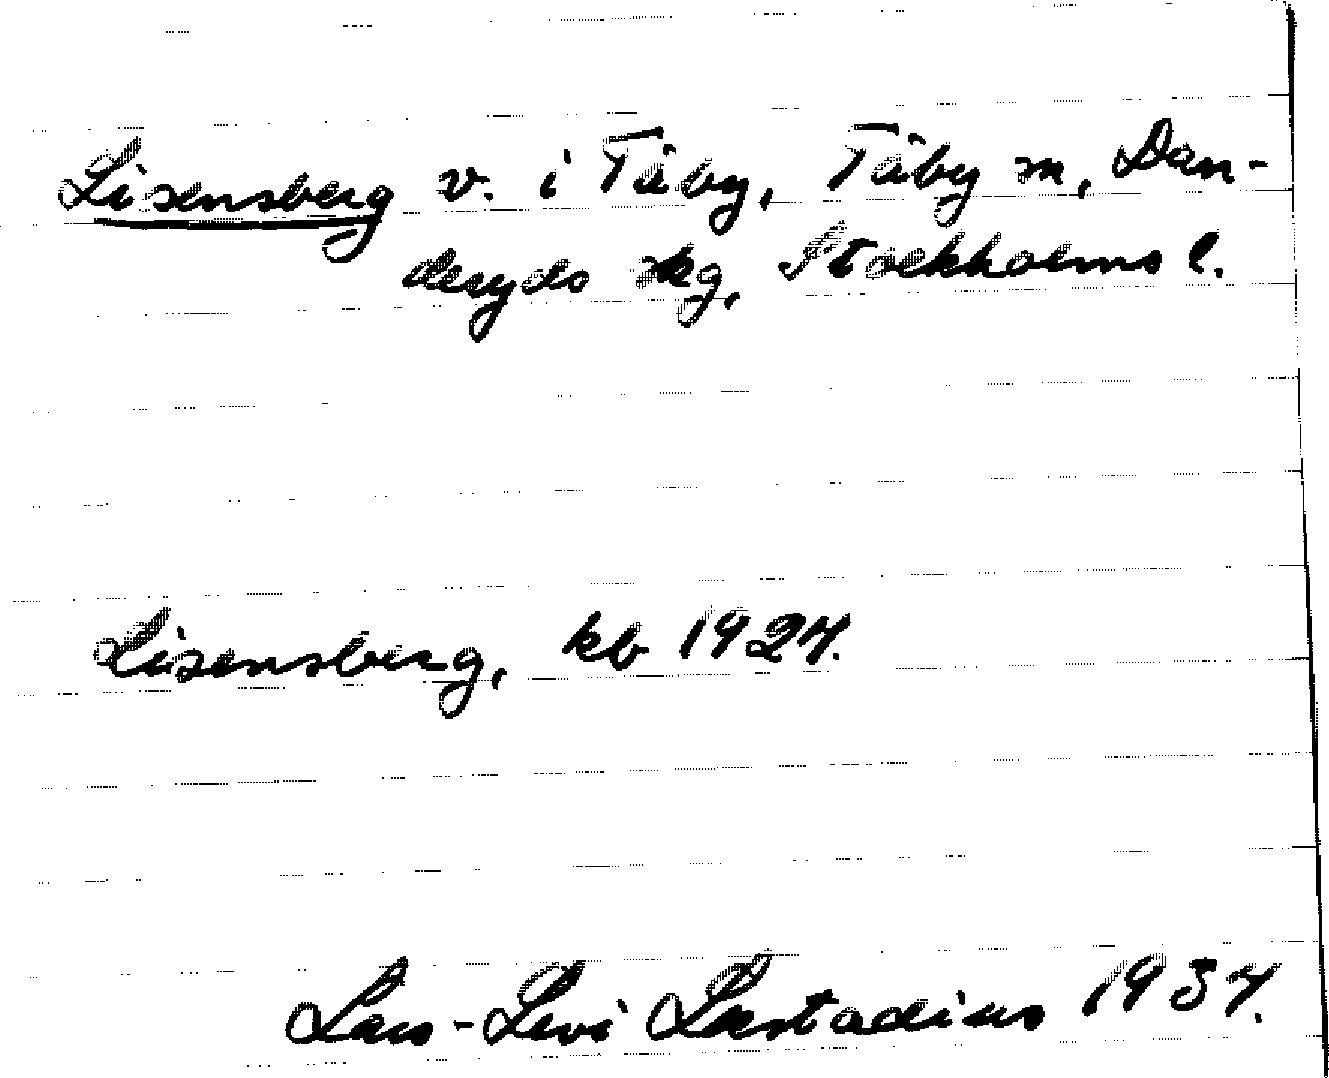 Lisensberg v. i Täby, Täby sn, Dan-
deryds skg, Stockholms l.
Lisensberg, kb 1927.
Lars-Levi Læstadius 1937.